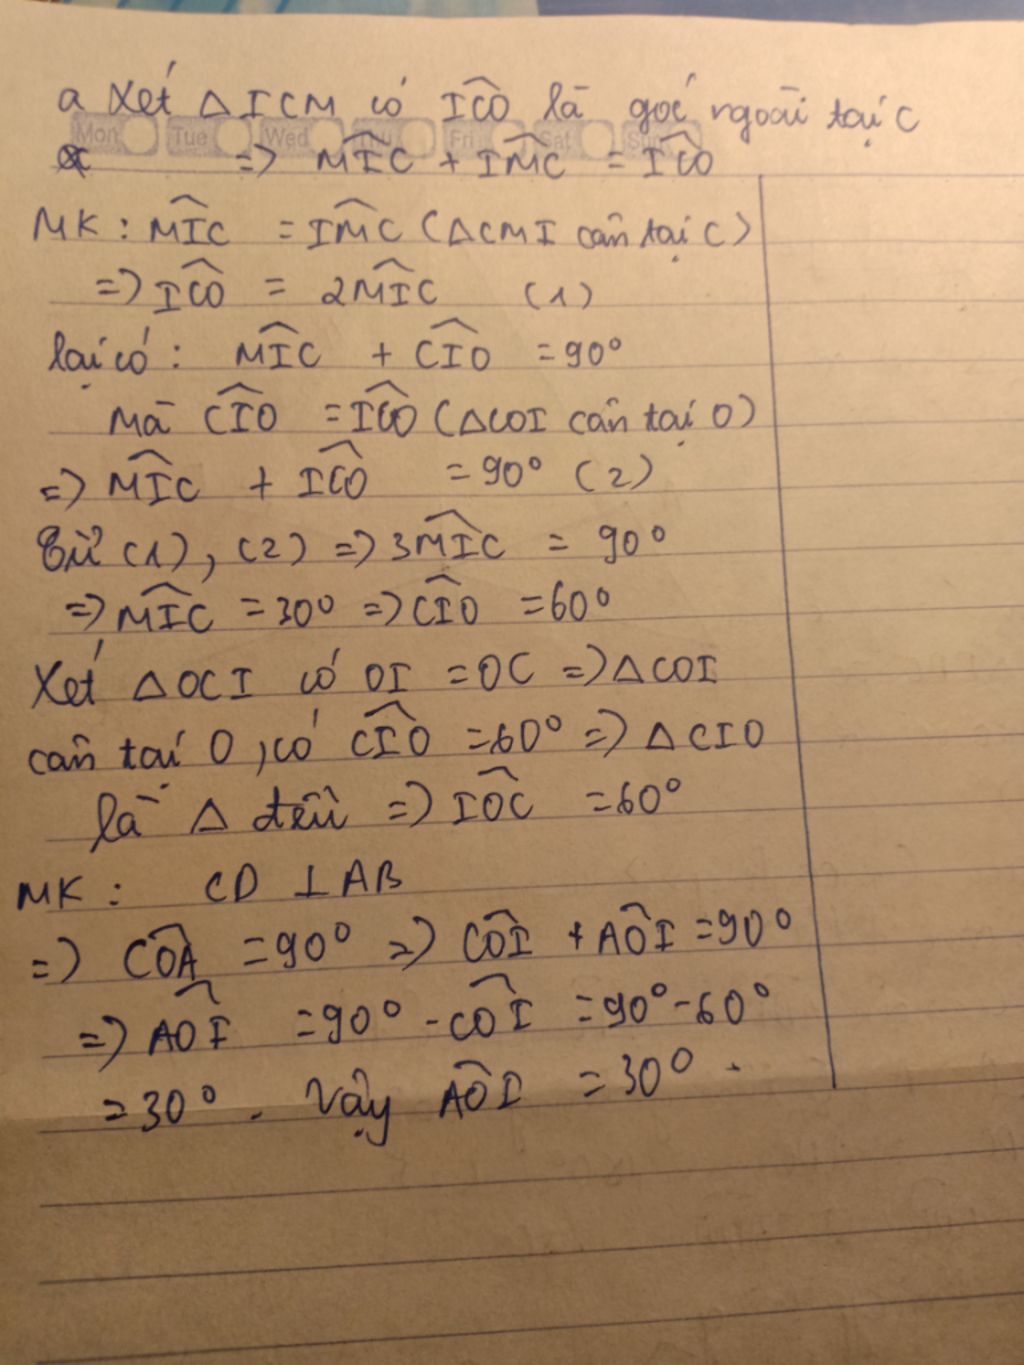 a Xét △ICM có \widehat{ICO} là góc ngoài tại C
Mon Tue Wed Thu Fri Sat Sun
=> \widehat{MIC} + \widehat{IMC} = \widehat{ICO}
MK : \widehat{MIC} = \widehat{IMC} (△CMI cân tại C)
=> \widehat{ICO} = 2\widehat{MIC} (1)
lại có : \widehat{MIC} + \widehat{CIO} = 90°
Mà \widehat{CIO} = \widehat{ICO} (△COI cân tại O)
=> \widehat{MIC} + \widehat{ICO} = 90° (2)
Từ (1), (2) => 3\widehat{MIC} = 90°
=> \widehat{MIC} = 30° => \widehat{CIO} = 60°
Xét △OCI có OI = OC => △COI
cân tại O, có \widehat{CIO} = 60° => △CIO
là △ đều => \widehat{IOC} = 60°
MK : CD ⊥ AB
=> \widehat{COA} = 90° => \widehat{COI} + \widehat{AOI} = 90°
=> \widehat{AOI} = 90° - \widehat{COI} = 90° - 60°
= 30°. Vậy \widehat{AOI} = 30°.